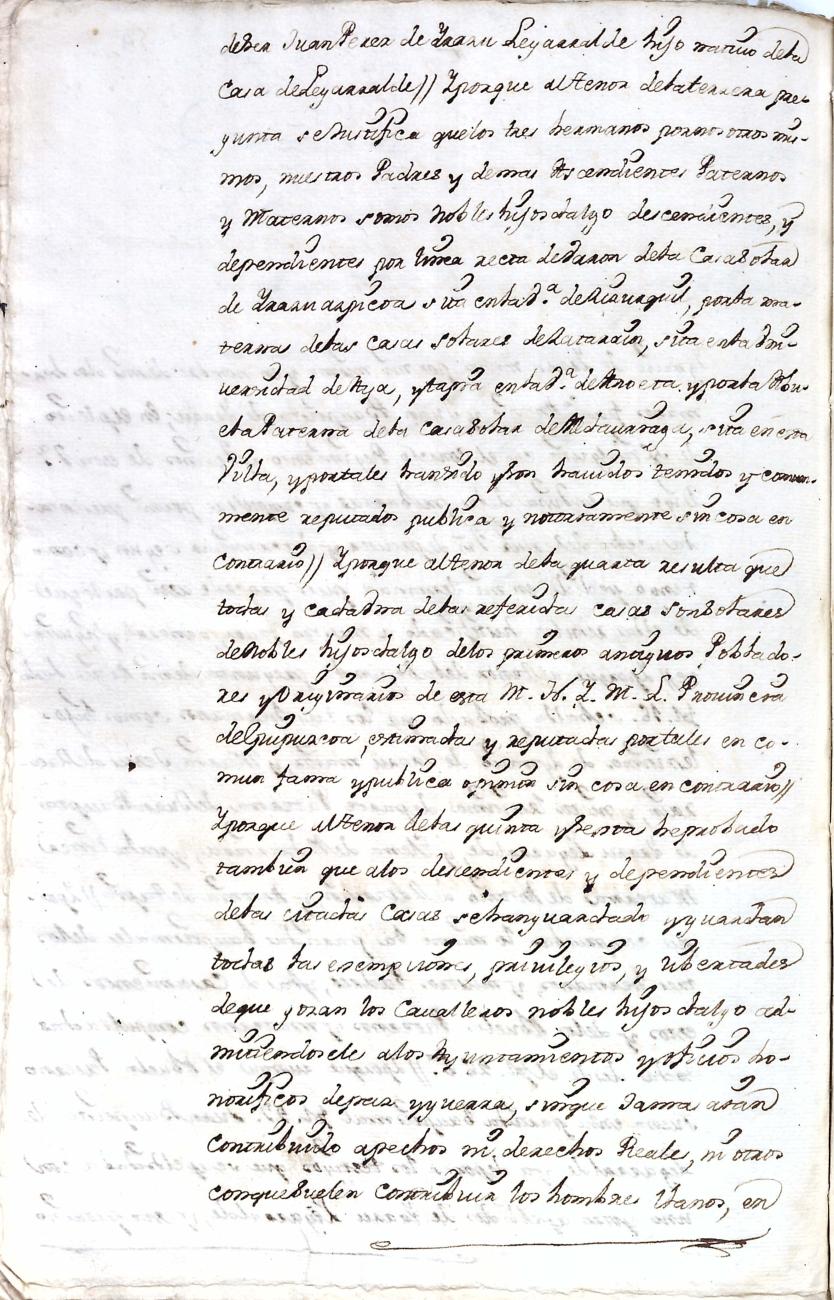 deser Juan Perez de Yraru Leyarralde hijo nativo dela
Casa de Leyarralde // Yporque altenor delaterzera pre-
gunta seJustifica quelos tres hermanos pornosotros mis-
mos, nuestros Padres y demas Ascendientes Paternos
y Maternos somos Nobles hijosdalgo descendientes, y
dependientes por linea recta deVaron dela CasaSolar
de sita enlaVª. de porla ma-
terna delas Casas Solares de sita enla Vni-
uersidad de Aya, y enlaVª. de Anoeta. yporla Abu-
ela Paterna dela CasaSolar de sita en esta
Villa, yportales hansido yson hauidos tenidos y comun-
mente reputados publica y notoriamente sin cosa en
Contrario // Yporque altenor dela quarta resulta que
todas y cadaVna delas referidas casas sonSolares
deNobles hijosdalgo delos primeros antiguos Poblado-
res yOriginarios de esta M. N. Y. M. L. Provincia
deGuipuzcoa, estimadas y reputadas portales en co-
mun fama ypublica opinion sin cosa en contrario //
Yporque altenor delas quinta ySesta heprobado
tambien que alos descendientes y dependientes
delas citadas Casas sehanguardado yguardan
todas las exempciones, privilegios, y libertades
deque gozan los Caualleros nobles hijosdalgo ad-
mitiendosele alos Ayuntamientos yoficios ho-
norificos depaz yguerra, sinque Jamas aian
Contribuido apechos ni derechos Reales, ni otros
conqueSuelen Contribuir los hombres llanos, en